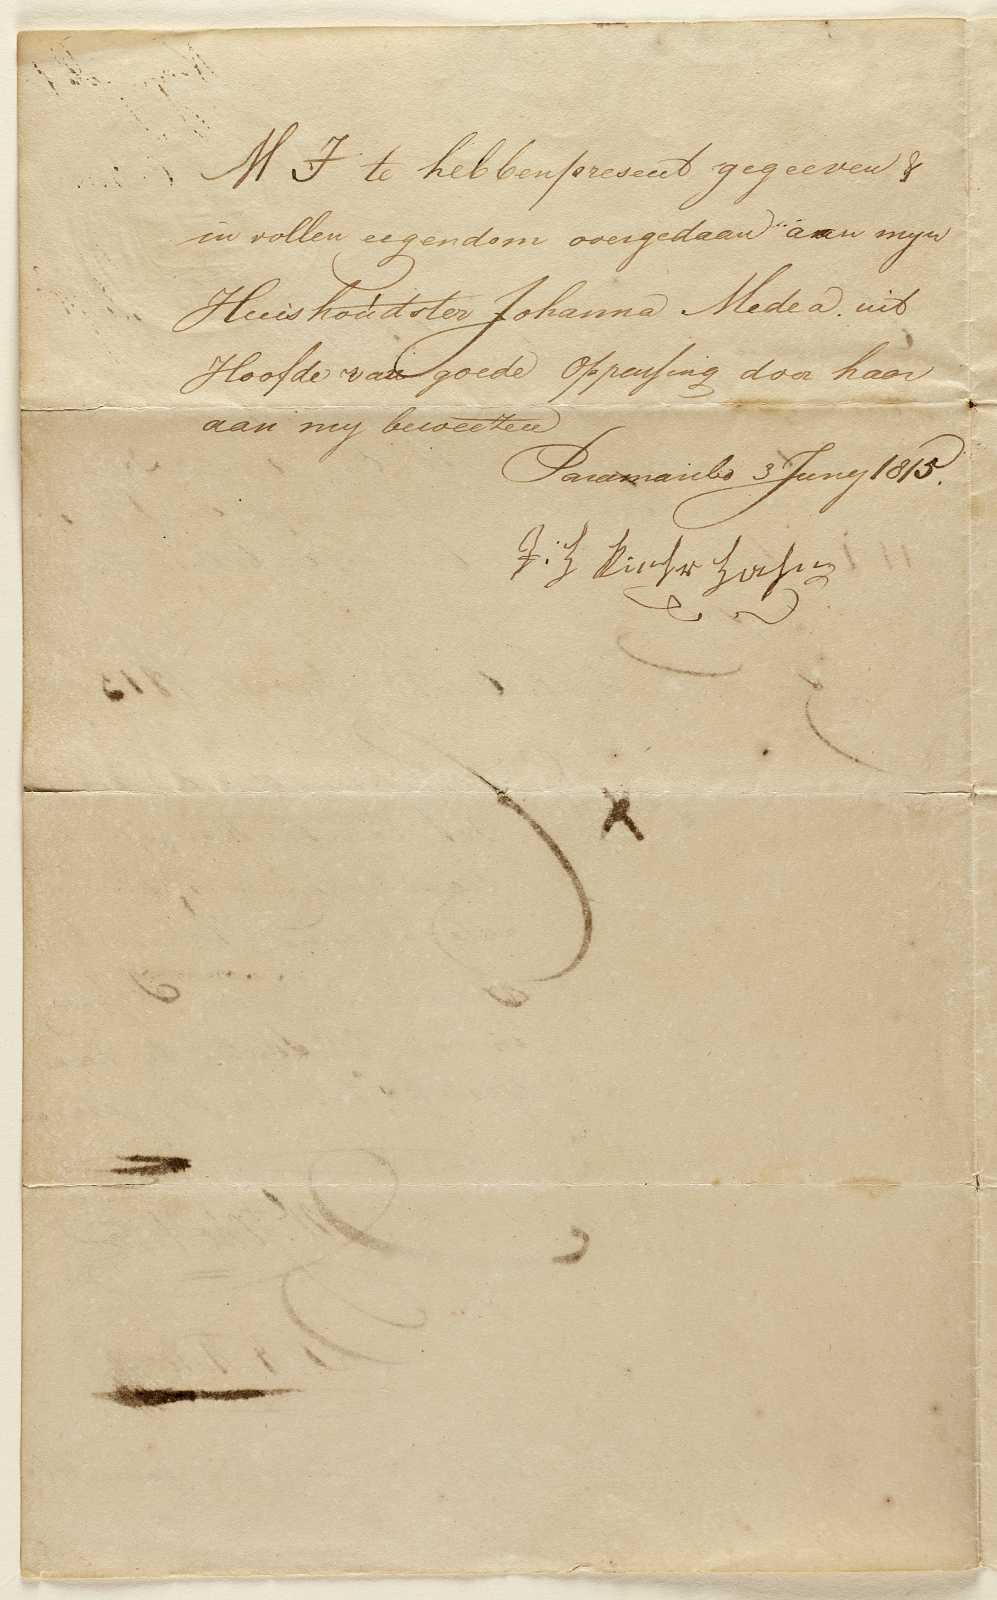 M J te hebben present gegeeven &
in vollen eegendom overgedaan aan myn
Huishoudster Johanna Medea. uit
Hoofde van goede Oppassing door haar
aan my beweezen
Paramaribo 3 Juny 1815.